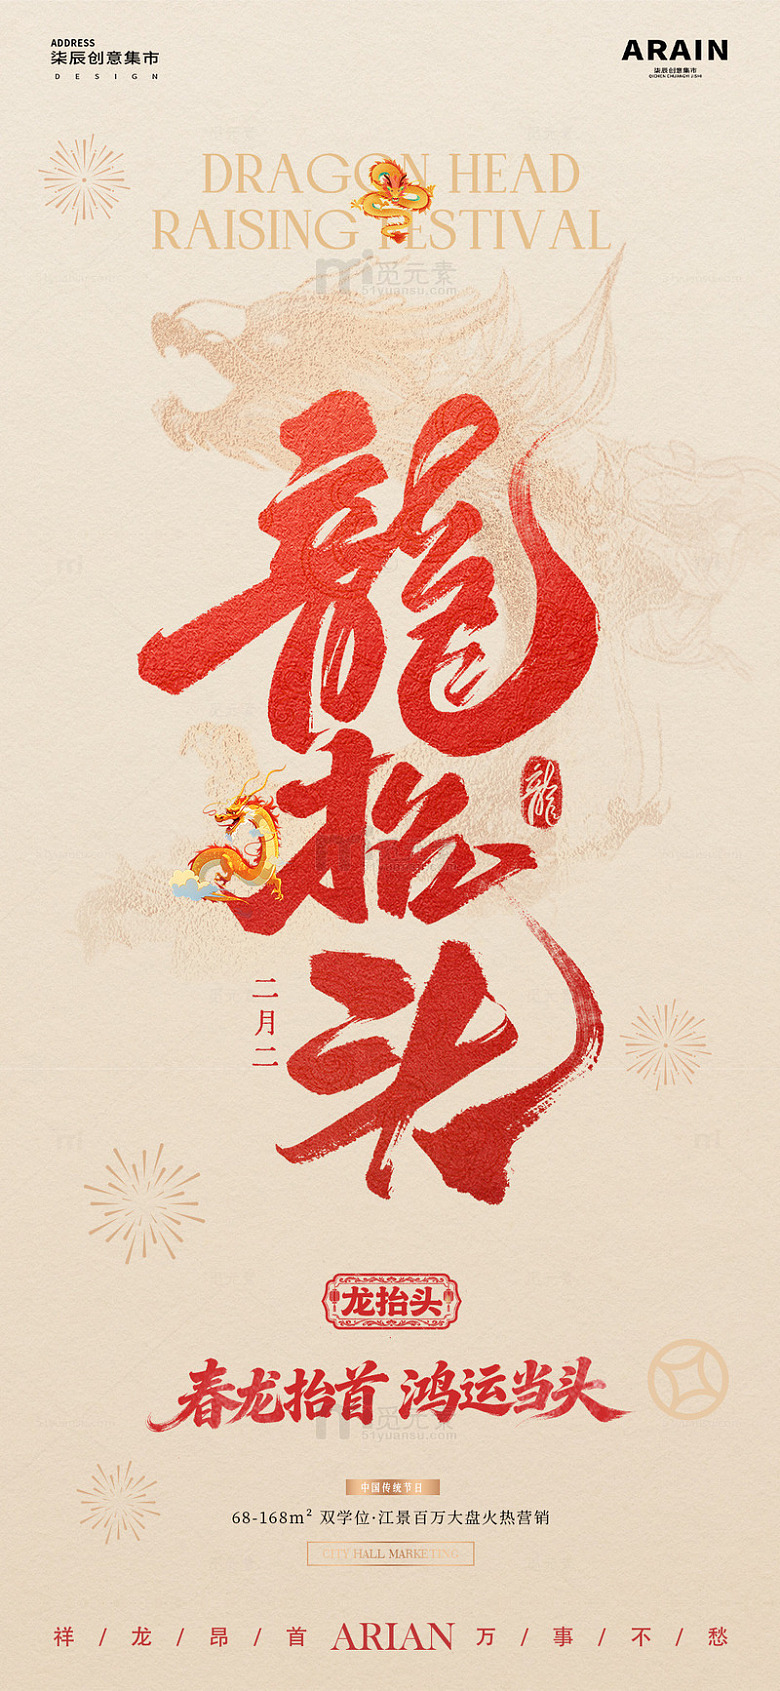 ADDRESS
柒辰创意集市
DESIGN
ARAIN
柒辰创意集市
QICHEN CHUANGYI JISHI
DRAGON HEAD
RAISING FESTIVAL
觅元素
51yuansu.com
龍
抬
头
龍
二月二
龙抬头
春龙抬首 鸿运当头
觅元素
51yuansu.com
中国传统节日
68-168m² 双学位·江景百万大盘火热营销
CITY HALL MARKETING
祥 / 龙 / 昂 / 首 ARIAN 万 / 事 / 不 / 愁